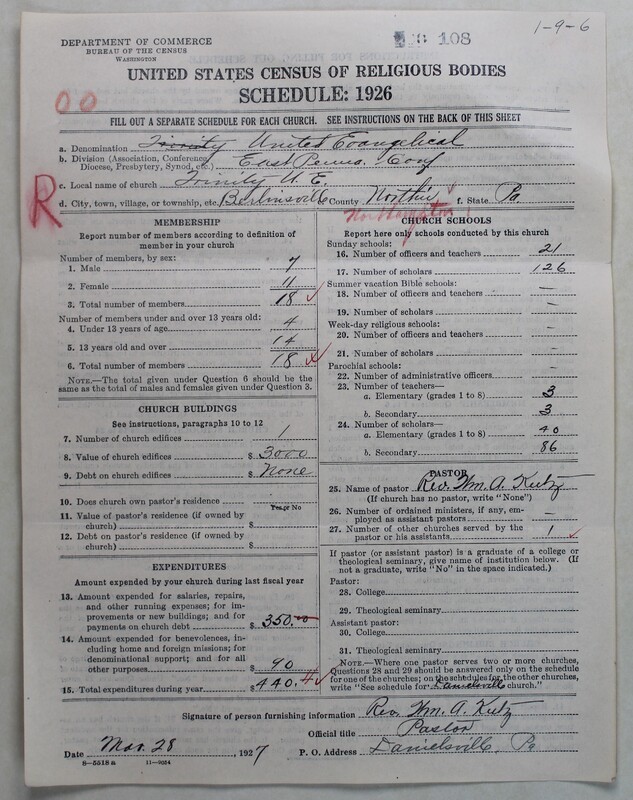 1-9-6
DEPARTMENT OF COMMERCE
BUREAU OF THE CENSUS
WASHINGTON
108
UNITED STATES CENSUS OF RELIGIOUS BODIES
SCHEDULE: 1926
00
FILL OUT A SEPARATE SCHEDULE FOR EACH CHURCH. SEE INSTRUCTIONS ON THE BACK OF THIS SHEET
a. Denomination Trinity United Evangelical
b. Division (Association, Conference, Diocese, Presbytery, Synod, etc.) East Penna. Conf
c. Local name of church Trinity U. E.
R
d. City, town, village, or township, etc. Berlinsville e. County North'n f. State Pa.
Northampton
MEMBERSHIP
Report number of members according to definition of
member in your church
Number of members, by sex:
1. Male 7
2. Female 11
3. Total number of members 18
Number of members under and over 13 years old:
4. Under 13 years of age 4
5. 13 years old and over 14
6. Total number of members 18
NOTE.—The total given under Question 6 should be the
same as the total of males and females given under Question 3.
CHURCH BUILDINGS
See instructions, paragraphs 10 to 12
7. Number of church edifices 1
8. Value of church edifices $ 3000
9. Debt on church edifices $ None
10. Does church own pastor's residence
Yes or No
11. Value of pastor's residence (if owned by
church) $
12. Debt on pastor's residence (if owned by
church) $
EXPENDITURES
Amount expended by your church during last fiscal year
13. Amount expended for salaries, repairs,
and other running expenses; for im-
provements or new buildings; and for
payments on church debt $ 350.00
14. Amount expended for benevolences,
including home and foreign missions; for
denominational support; and for all
other purposes 90
15. Total expenditures during year $ 440.
CHURCH SCHOOLS
Report here only schools conducted by this church
Sunday schools:
16. Number of officers and teachers 21
17. Number of scholars 126
Summer vacation Bible schools:
18. Number of officers and teachers —
19. Number of scholars —
Week-day religious schools:
20. Number of officers and teachers —
21. Number of scholars —
Parochial schools:
22. Number of administrative officers —
23. Number of teachers—
a. Elementary (grades 1 to 8) 3
b. Secondary 3
24. Number of scholars—
a. Elementary (grades 1 to 8) 40
b. Secondary 86
PASTOR
25. Name of pastor Rev. Wm. A. Kutz
(If church has no pastor, write "None")
26. Number of ordained ministers, if any, em-
ployed as assistant pastors —
27. Number of other churches served by the
pastor or his assistants 1
If pastor (or assistant pastor) is a graduate of a college or
theological seminary, give name of institution below. (If
not a graduate, write "No" in the space indicated.)
Pastor:
28. College
29. Theological seminary
Assistant pastor:
30. College
31. Theological seminary
NOTE.—Where one pastor serves two or more churches,
Questions 28 and 29 should be answered only on the schedule
for one of the churches; on the schedules for the other churches,
write "See schedule for Danielsville church."
Signature of person furnishing information Rev. Wm. A. Kutz
Official title Pastor
Date Mar. 28, 1927 P. O. Address Danielsville, Pa
8—5518 a 11—9054